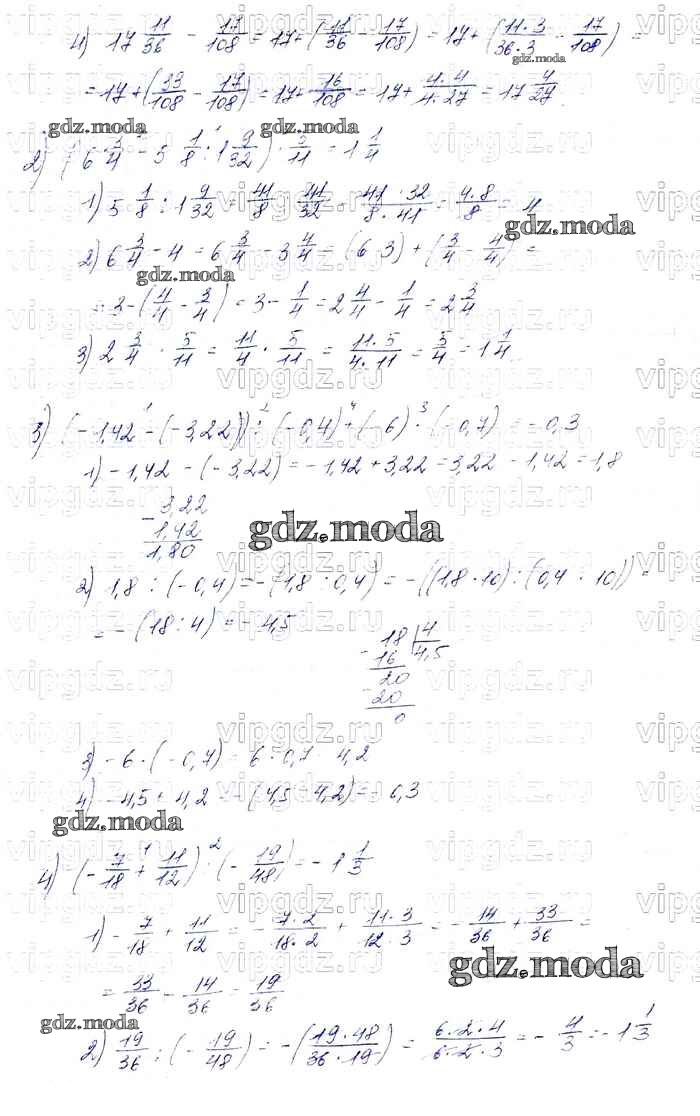 4) 17 11/36 - 17/108 = 17 + (11/36 - 17/108) = 17 + (11·3/36·3 - 17/108) =
= 17 + (33/108 - 17/108) = 17 + 16/108 = 17 + 4·4/4·27 = 17 4/27
gdz.moda
2) (6 3/4 - 5 1/8 : 1 9/32) · 5/11 = 1 1/4
1) 5 1/8 : 1 9/32 = 41/8 : 41/32 = 41·32/8·41 = 4·8/8 = 4
gdz.moda
2) 6 3/4 - 4 = 6 3/4 - 3 4/4 = (6 3) + (3/4 - 4/4) =
gdz.moda
= 3 - (4/4 - 3/4) = 3 - 1/4 = 2 4/4 - 1/4 = 2 3/4
3) 2 3/4 · 5/11 = 11/4 · 5/11 = 11·5/4·11 = 5/4 = 1 1/4
3) (-1,42 - (-3,22)) : (-0,4) + (-6) · (-0,7) = -0,3
1) -1,42 - (-3,22) = -1,42 + 3,22 = 3,22 - 1,42 = 1,8
- 3,22
1,42
1,80
gdz.moda
2) 1,8 : (-0,4) = -(1,8 : 0,4) = -((1,8 · 10) : (0,4 · 10)) =
= -(18 : 4) = -4,5
18 | 4
- 16 4,5
20
- 20
0
3) -6 · (-0,7) = 6 · 0,7 4,2
4) -4,5 + 4,2 = -(4,5 4,2) = 0,3
gdz.moda
4) (-7/18 + 11/12) : (-19/48) = -1 1/3
1) -7/18 + 11/12 = -7·2/18·2 + 11·3/12 3 = -14/36 + 33/36 =
gdz.moda
= 33/36 - 14/36 = 19/36
gdz.moda
2) 19/36 : (-19/48) = -(19·48/36·19) = 6·2·4/6·2·3 = -4/3 = -1 1/3